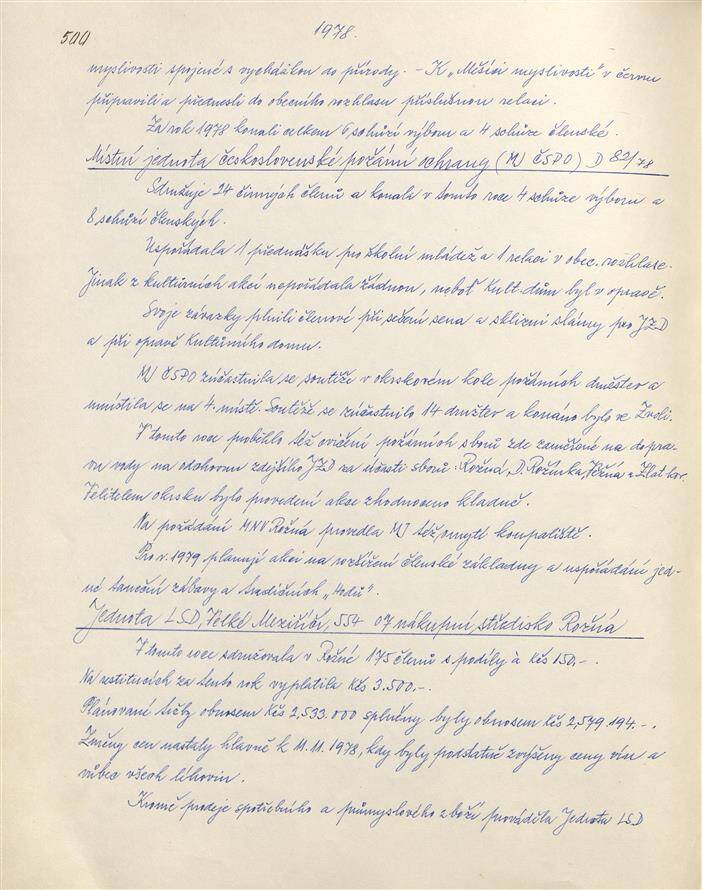 500
1978.
myslivosti spojené s vycházkou do přírody. - K „Měsíci myslivosti" v červnu
připravili a přednesli do obecního rozhlasu příslušnou relaci.
Za rok 1978 konali celkem 6 schůzí výboru a 4 schůze členské.
Místní jednota československé požární ochrany (MJ ČSPO) D 82/78
Sdružuje 24 činných členů a konala v tomto roce 4 schůze výboru a
8 schůzí členských.
Uspořádala 1 přednášku pro školní mládež a 1 relaci v obec. rozhlase.
Jinak z kulturních akcí nepořádala žádnou, neboť Kult. dům byl v opravě.
Svoje závazky plnili členové při sečení sena a sklizni slámy pro JZD
a při opravě Kulturního domu.
MJ ČSPO zúčastnila se soutěže v okrskovém kole požárních družstev a
umístila se na 4. místě. Soutěže se zúčastnilo 14 družstev a konáno bylo ve Zvoli.
V tomto roce proběhlo též cvičení požárních sborů zde zaměřené na dopra-
vu vody na odchovnu zdejšího JZD za účasti sborů: Rožná, D. Rožínka, Věžná a Zlatkov.
Velitelem okrsku bylo provedení akce zhodnoceno kladně.
Na požádání MNV Rožná provedla MJ též umytí koupaliště.
Pro r. 1979 plánují akci na rozšíření členské základny a uspořádání jed-
né taneční zábavy a tradičních „hodů".
Jednota LSD, Velké Meziříčí, 554 07 nákupní středisko Rožná
V tomto roce sdružovala v Rožné 175 členů s podíly à Kčs 150,-.
Na restitucích za tento rok vyplatila Kčs 3.500,-.
Plánované tržby obnosem Kčs 2,533.000 splněny byly obnosem Kčs 2,579.194.-.
Změny cen nastaly hlavně k 11.11.1978, kdy byly podstatně zvýšeny ceny vín a
vůbec všech lihovin.
Kromě prodeje spotřebního a průmyslového zboží prováděla Jednota LSD